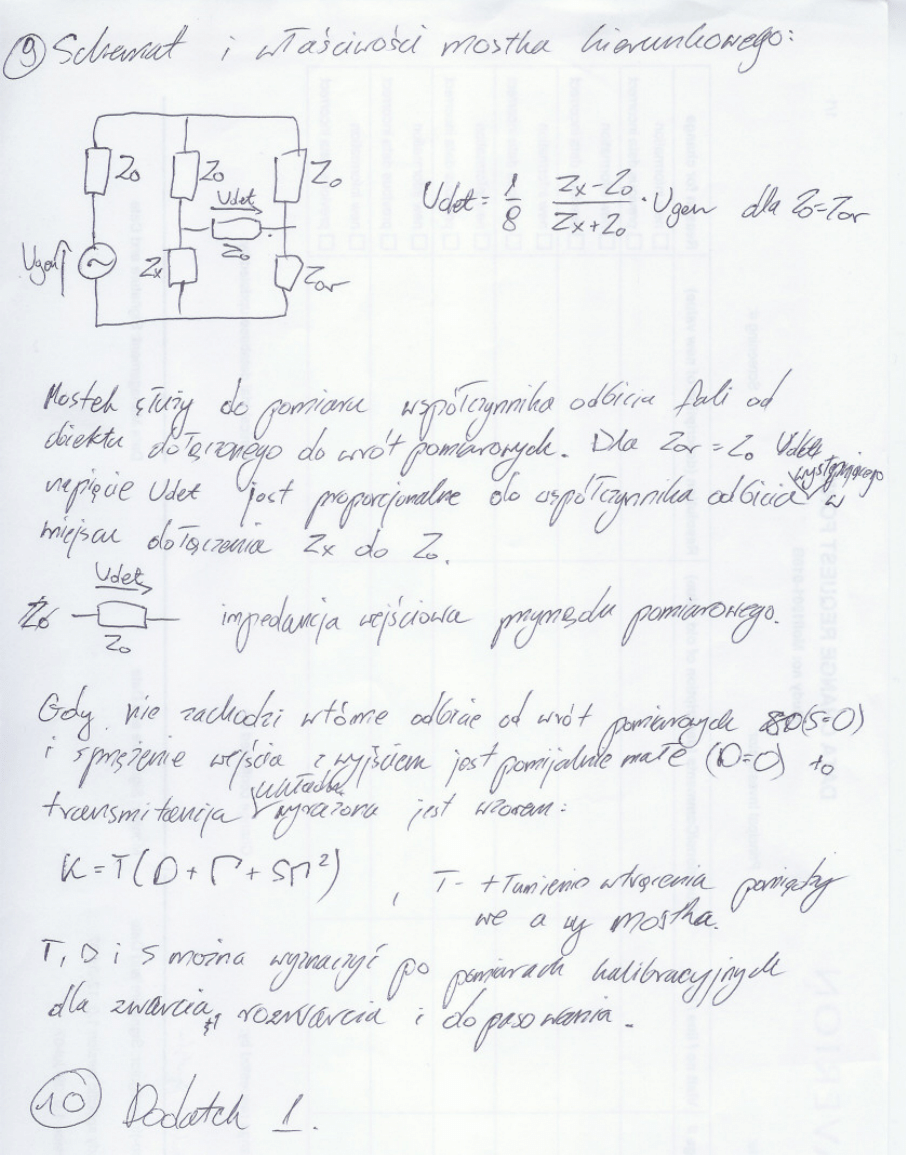 9 Schemat i właściwości mostka kierunkowego:
Z0 Z0 Z0
Udet
Z0
Ugen Zx Zor
Udet = 1/8 (Zx-Z0)/(Zx+Z0) · Ugen dla Z0=Zor
Mostek służy do pomiaru współczynnika odbicia fali od
obiektu dołączonego do wrót pomiarowych. Dla Zor = Z0 Udet
napięcie Udet jest proporcjonalne do współczynnika odbicia występującego w
miejscu dołączenia Zx do Z0.
Udet
Z0
Z0 impedancja wejściowa przyrządu pomiarowego.
Gdy nie zachodzi wtórne odbicie od wrót pomiarowych (S=0)
i sprzężenie wejścia z wyjściem jest pomijalnie małe (D=0) to
transmitancja układu wyrażona jest wzorem:
K = T(D + Γ + SΓ²) , T - tłumienie wtrącenia pomiędzy
we a wy mostka.
T, D i S można wyznaczyć po pomiarach kalibracyjnych
dla zwarcia, rozwarcia i dopasowania.
10 Dodatek 1.